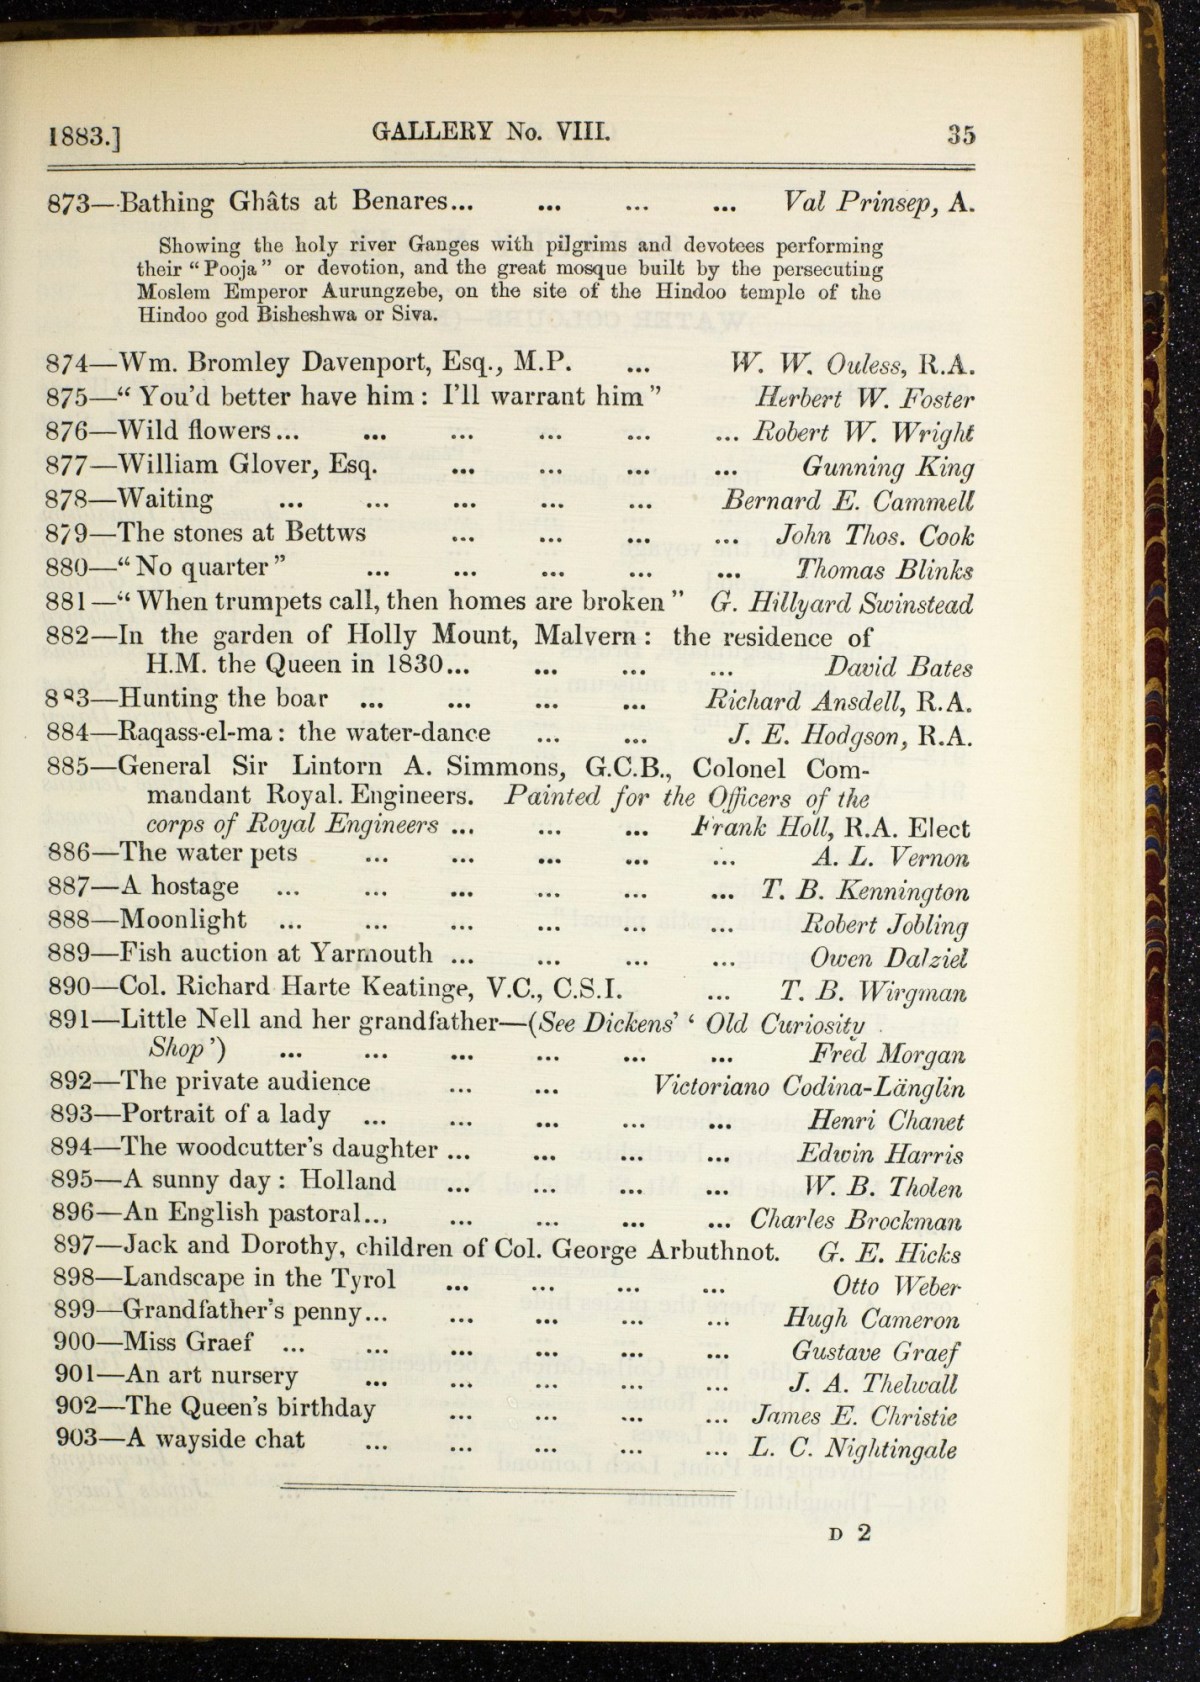 1883.] GALLERY No. VIII. 35
873—Bathing Ghâts at Benares... ... ... ... Val Prinsep, A.
Showing the holy river Ganges with pilgrims and devotees performing
their “Pooja” or devotion, and the great mosque built by the persecuting
Moslem Emperor Aurungzebe, on the site of the Hindoo temple of the
Hindoo god Bisheshwa or Siva.
874—Wm. Bromley Davenport, Esq., M.P. ... W. W. Ouless, R.A.
875—“You’d better have him: I’ll warrant him” Herbert W. Foster
876—Wild flowers... ... ... ... ... ... Robert W. Wright
877—William Glover, Esq. ... ... ... ... Gunning King
878—Waiting ... ... ... ... ... Bernard E. Cammell
879—The stones at Bettws ... ... ... ... John Thos. Cook
880—“No quarter” ... ... ... ... ... Thomas Blinks
881—“When trumpets call, then homes are broken” G. Hillyard Swinstead
882—In the garden of Holly Mount, Malvern: the residence of
H.M. the Queen in 1830... ... ... ... David Bates
883—Hunting the boar ... ... ... ... Richard Ansdell, R.A.
884—Raqass-el-ma: the water-dance ... ... J. E. Hodgson, R.A.
885—General Sir Lintorn A. Simmons, G.C.B., Colonel Com-
mandant Royal. Engineers. Painted for the Officers of the
corps of Royal Engineers ... ... ... Frank Holl, R.A. Elect
886—The water pets ... ... ... ... ... A. L. Vernon
887—A hostage ... ... ... ... ... ... T. B. Kennington
888—Moonlight ... ... ... ... ... ... Robert Jobling
889—Fish auction at Yarmouth ... ... ... ... Owen Dalziel
890—Col. Richard Harte Keatinge, V.C., C.S.I. ... T. B. Wirgman
891—Little Nell and her grandfather—(See Dickens’ ‘Old Curiosity
Shop’) ... ... ... ... ... ... Fred Morgan
892—The private audience ... ... Victoriano Codina-Länglin
893—Portrait of a lady ... ... ... ... ... Henri Chanet
894—The woodcutter’s daughter ... ... ... ... Edwin Harris
895—A sunny day: Holland ... ... ... ... W. B. Tholen
896—An English pastoral... ... ... ... ... Charles Brockman
897—Jack and Dorothy, children of Col. George Arbuthnot. G. E. Hicks
898—Landscape in the Tyrol ... ... ... ... Otto Weber
899—Grandfather’s penny... ... ... ... ... Hugh Cameron
900—Miss Graef ... ... ... ... ... ... Gustave Graef
901—An art nursery ... ... ... ... ... J. A. Thelwall
902—The Queen’s birthday ... ... ... ... James E. Christie
903—A wayside chat ... ... ... ... ... L. C. Nightingale
D 2